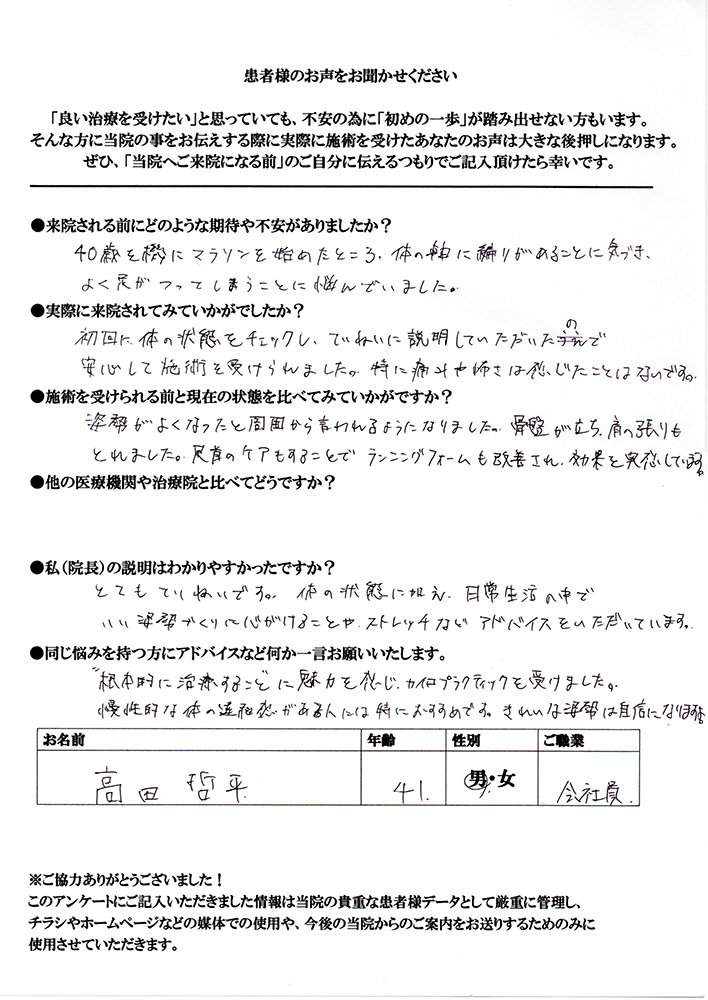 患者様のお声をお聞かせください
「良い治療を受けたい」と思っていても、不安の為に「初めの一歩」が踏み出せない方もいます。
そんな方に当院の事をお伝えする際に実際に施術を受けたあなたのお声は大きな後押しになります。
ぜひ、「当院へご来院になる前」のご自分に伝えるつもりでご記入頂けたら幸いです。
●来院される前にどのような期待や不安がありましたか？
40歳を機にマラソンを始めたところ、体の軸に偏りがあることに気づき、
よく足がつってしまうことに悩んでいました。
●実際に来院されてみていかがでしたか？
初回に体の状態をチェックし、ていねいに説明していただいたので
安心して施術を受けられました。特に痛みや怖さは感じたことはないです。
●施術を受けられる前と現在の状態を比べてみていかがですか？
姿勢がよくなったと周囲から言われるようになりました。骨盤が立ち、肩の張りも
とれました。足首のケアもすることでランニングフォームも改善され、効果を実感しています。
●他の医療機関や治療院と比べてどうですか？
●私（院長）の説明はわかりやすかったですか？
とてもていねいです。体の状態に加え、日常生活の中で
いい姿勢づくりに心がけることや、ストレッチなどアドバイスをいただいています。
●同じ悩みを持つ方にアドバイスなど何か一言お願いいたします。
"根本的に治療すること"に魅力を感じ、カイロプラクティックを受けました。
慢性的な体の違和感がある人には特におすすめです。きれいな姿勢は自信になります
お名前 年齢 性別 ご職業
高田 哲平 41. 男・女 会社員.
※ご協力ありがとうございました！
このアンケートにご記入いただきました情報は当院の貴重な患者様データとして厳重に管理し、
チラシやホームページなどの媒体での使用や、今後の当院からのご案内をお送りするためのみに
使用させていただきます。